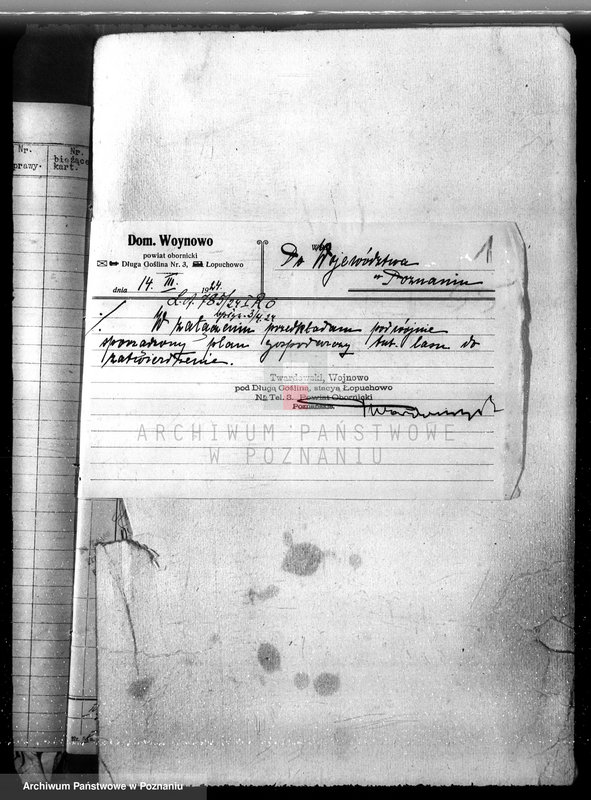 Nr.
prawy.
Nr.
bieżące
kart.
Dom. Woynowo
powiat obornicki
Długa Goślina Nr. 3, Łopuchowo
dnia 14. III. 1924.
Do Województwa
w Poznaniu
1
L. 785/24 I R O
W załączeniu przedkładam podwójnie
sporządzony plan gospodarczy tut. lasu do
zatwierdzenia.
Twardowski, Wojnowo
pod Długą Gośliną, stacya Łopuchowo
Nr. Tel. 3. Powiat Obornicki
Poznańskie.
Twardowski
ARCHIWUM PAŃSTWOWE
W POZNANIU
Archiwum Państwowe w Poznaniu